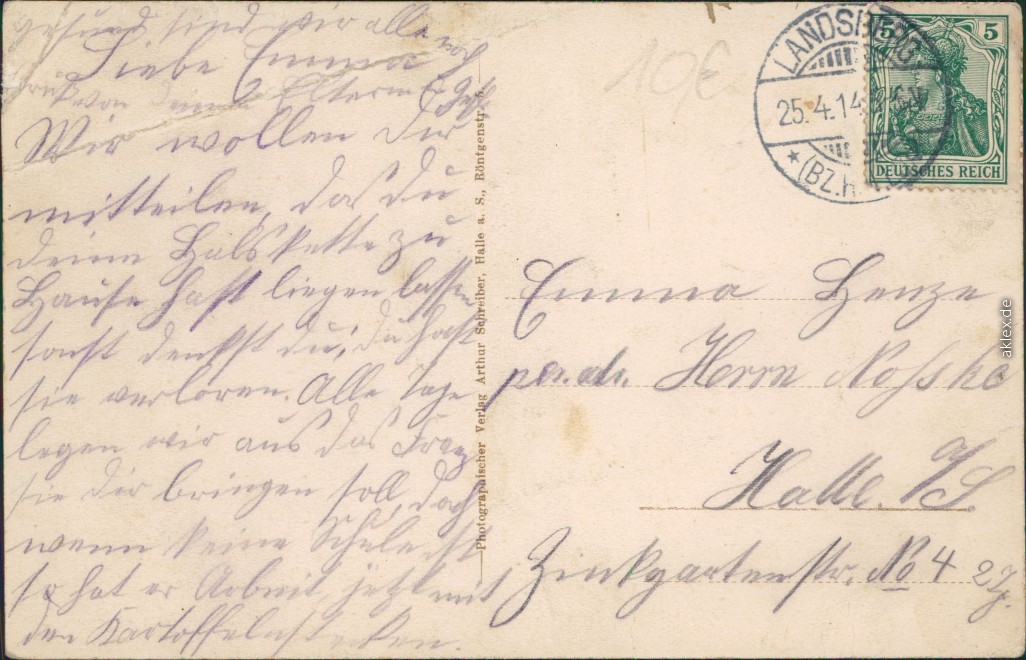 gesund sind wir alle noch
Liebe Emma
Gruß von deinen Eltern
Wir wollen dir
mitteilen, das du
deine Halskette zu
Hause hast liegen lassen
sonst denkst du, du hast
sie verloren. Alle Tage
legen wir aus das Franz
sie dir bringen soll, doch
wenn keine Schule ist
so hat er Arbeit, jetzt mit
den Kartoffeln
Photographischer Verlag Arthur Schreiber, Halle a. S., Röntgenstr.
10€
LANDSBERG
25.4.14
(BZ.H
5 5
DEUTSCHES REICH
Emma Henze
per. adr. Herrn Noßke
Halle a/S.
Zinkgartenstr. No 4 2 Tr.
aklex.de